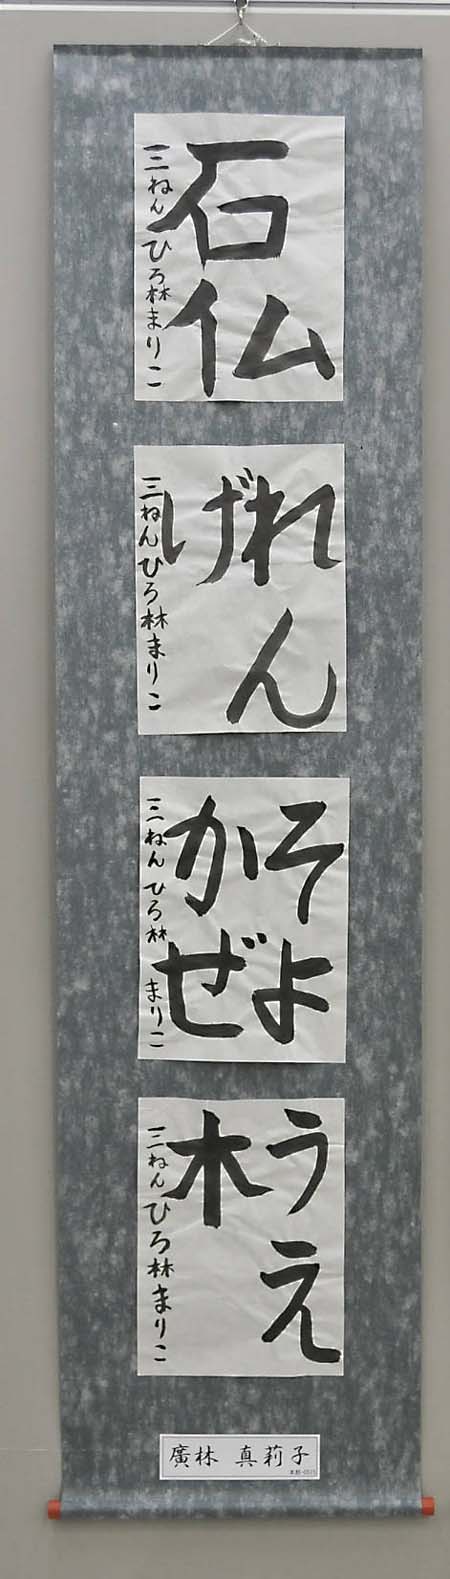 石仏
三ねんひろ林まりこ
れん
げ
三ねんひろ林まりこ
そよ
かぜ
三ねんひろ林まりこ
うえ
木
三ねんひろ林まりこ
廣林 真莉子